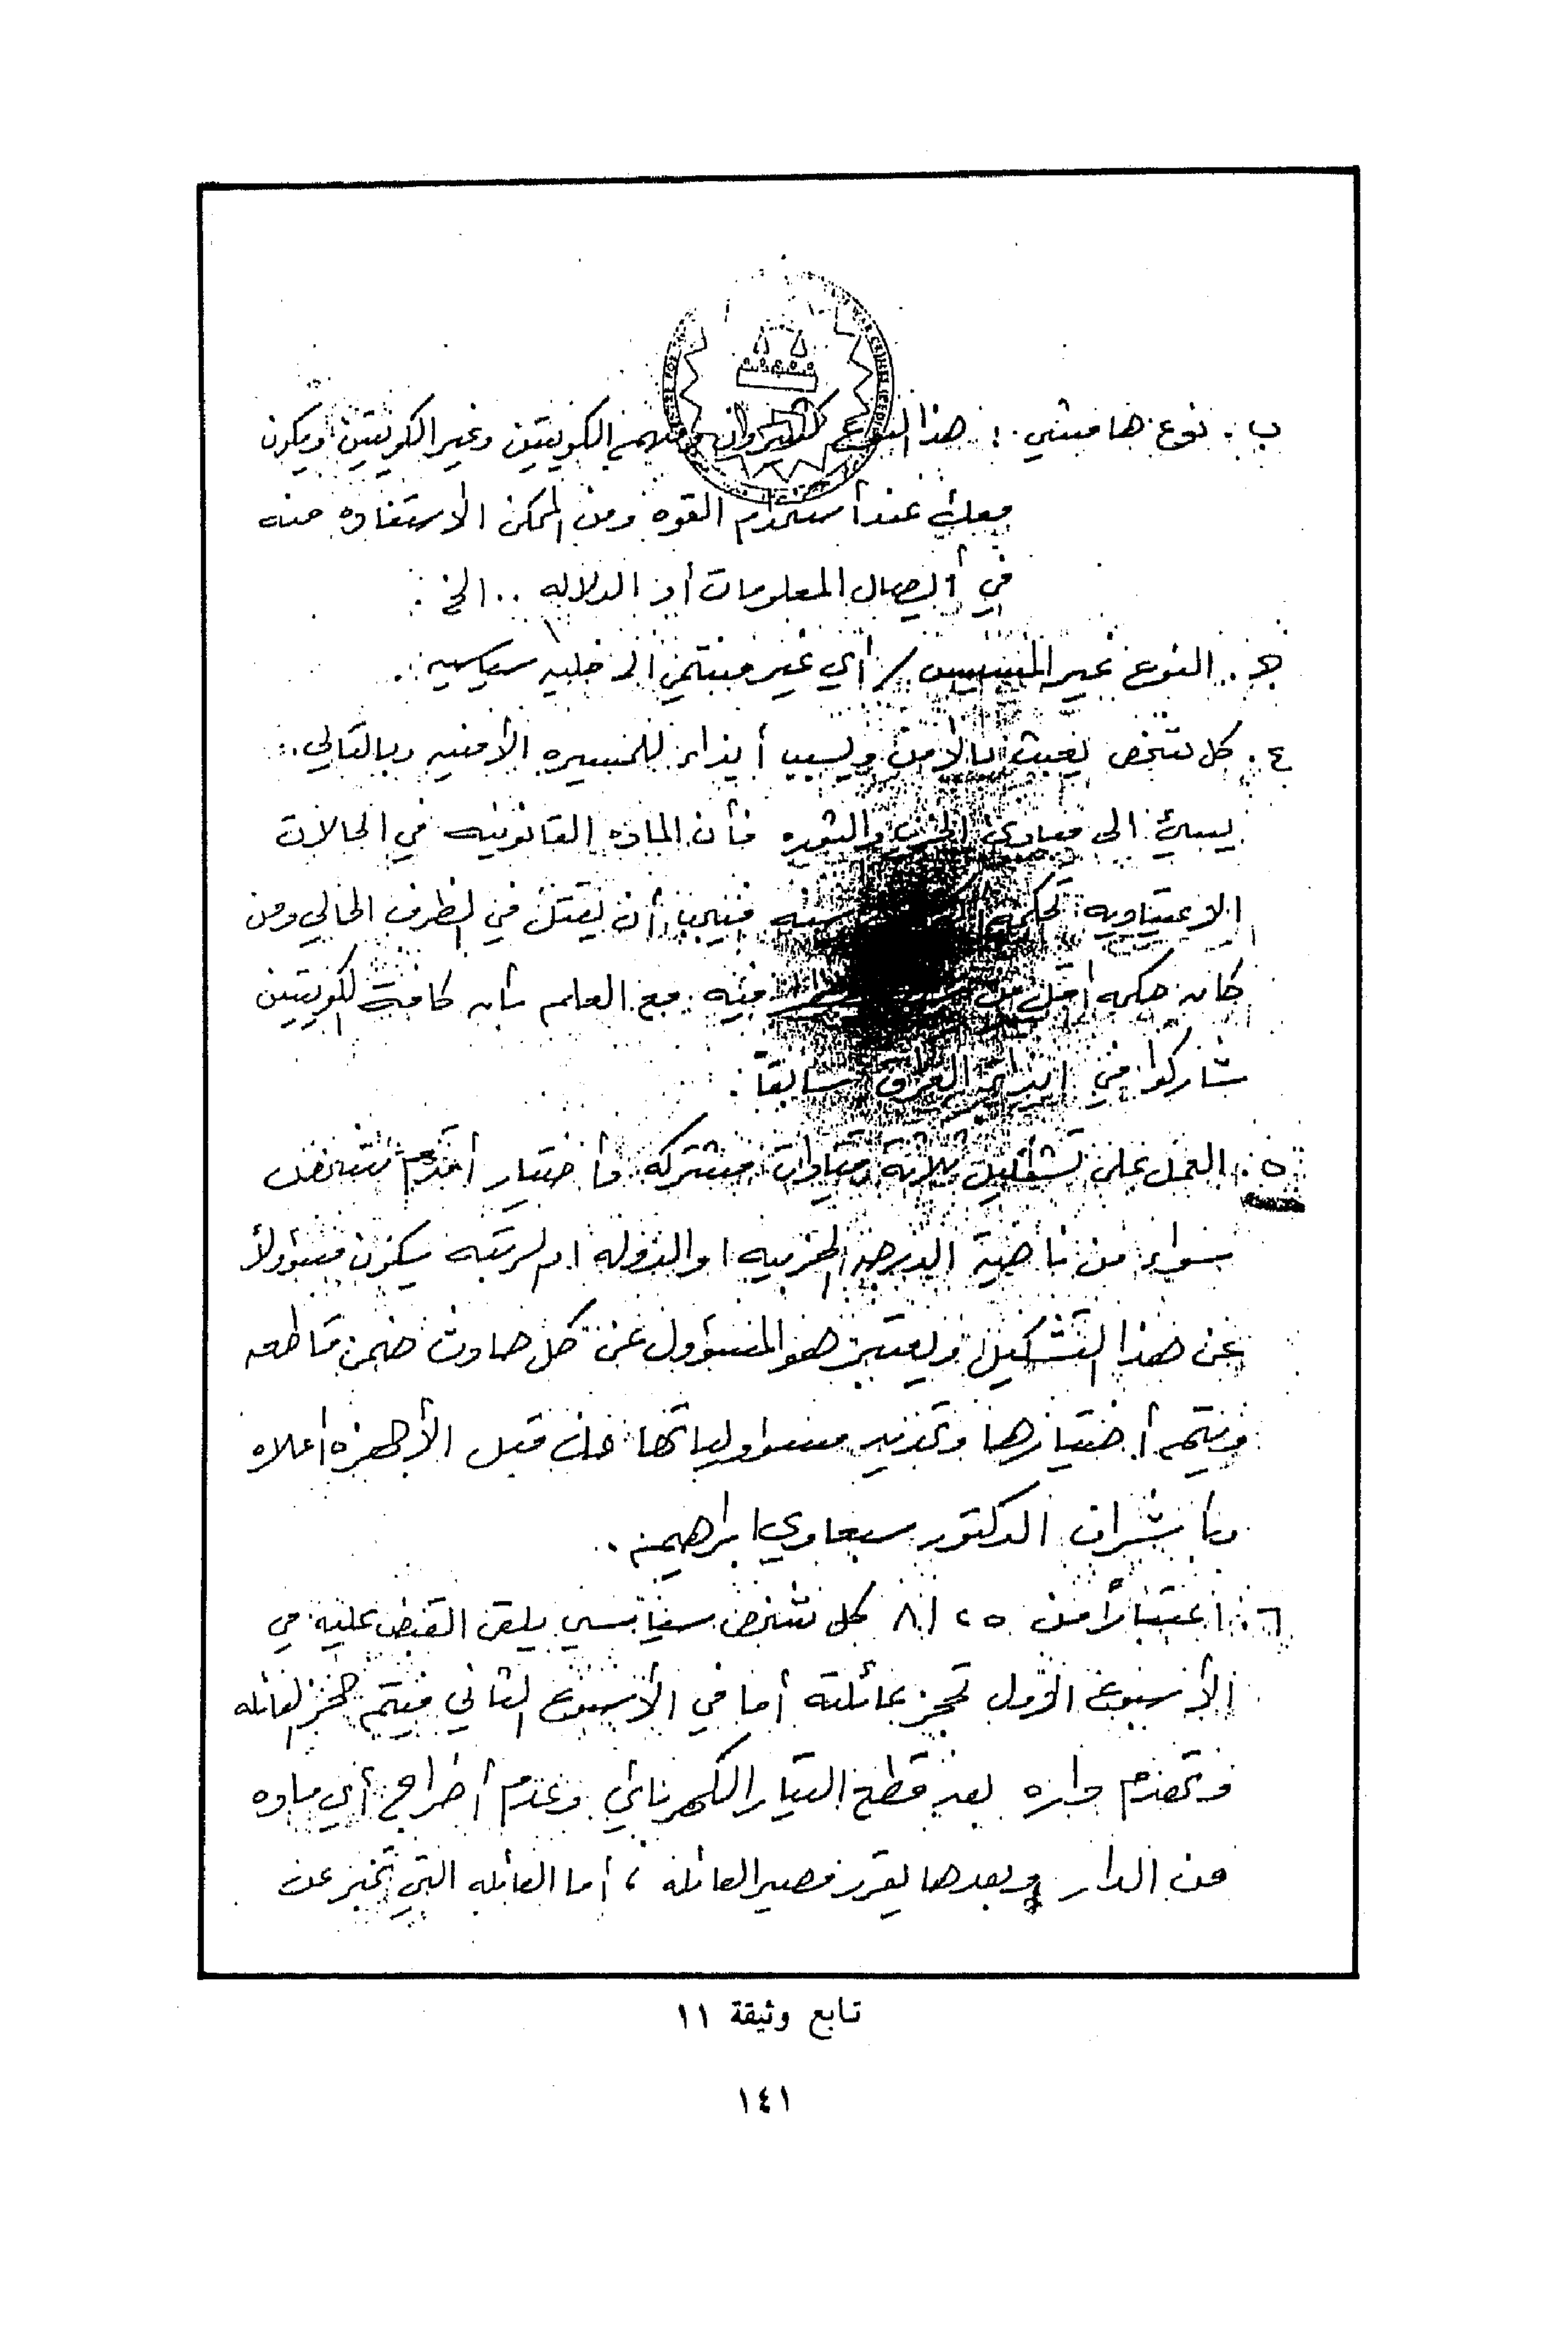 ب . نوع هامشي : هذا النوع كثيرون ومنهم الكويتيين وغير الكويتيين ويكون
معك عند أستخدام القوه ومن الممكن الاستفاده منه
في أيصال المعلومات أو الدلاله .. الخ .
جـ . النوع غير المسيس / أي غير منتمي الى خليه سياسيه .
٤ . كل شخص يعبث بالأمن ويسبب أيذاء للمسيره الأمنيه وبالتالي
يسيئ الى مبادئ الحزب والثوره فأن الماده القانونيه في الحالات
الاعتياديه تحكمه سنه فيجب أن يقتل في الظرف الحالي ومن
كان حكمه اقل من فيه . مع العلم بأن كافة الكويتيين
شاركوا في ايذاء العراق سابقاً .
٥ . العمل على تشكيل ثلاثة قيادات مشتركه وأختيار أقدم شخص
سواء من ناحية الدرجه الحزبيه او الدوله او الرتبه يكون مسؤولاً
عن هذا التشكيل ويعتبر هو المسؤول عن كل حادث ضمن قاطعه
ويتم أختيارها وتحديد مسؤولياتها من قبل الأجهزه اعلاه
وبأشراف الدكتور سبعاوي ابراهيم .
٦ . اعتباراً من ٢٥ / ٨ كل شخص سياسي يلقى القبض عليه في
الأسبوع الأول تحجز عائلته أما في الأسبوع الثاني فيتم حجز العائله
وتهدم داره بعد قطع التيار الكهربائي وعدم أخراج أي ماده
من الدار وبعدها يقرر مصير العائله ، أما العائله التي تخبر عن
تابع وثيقة ١١
١٤١